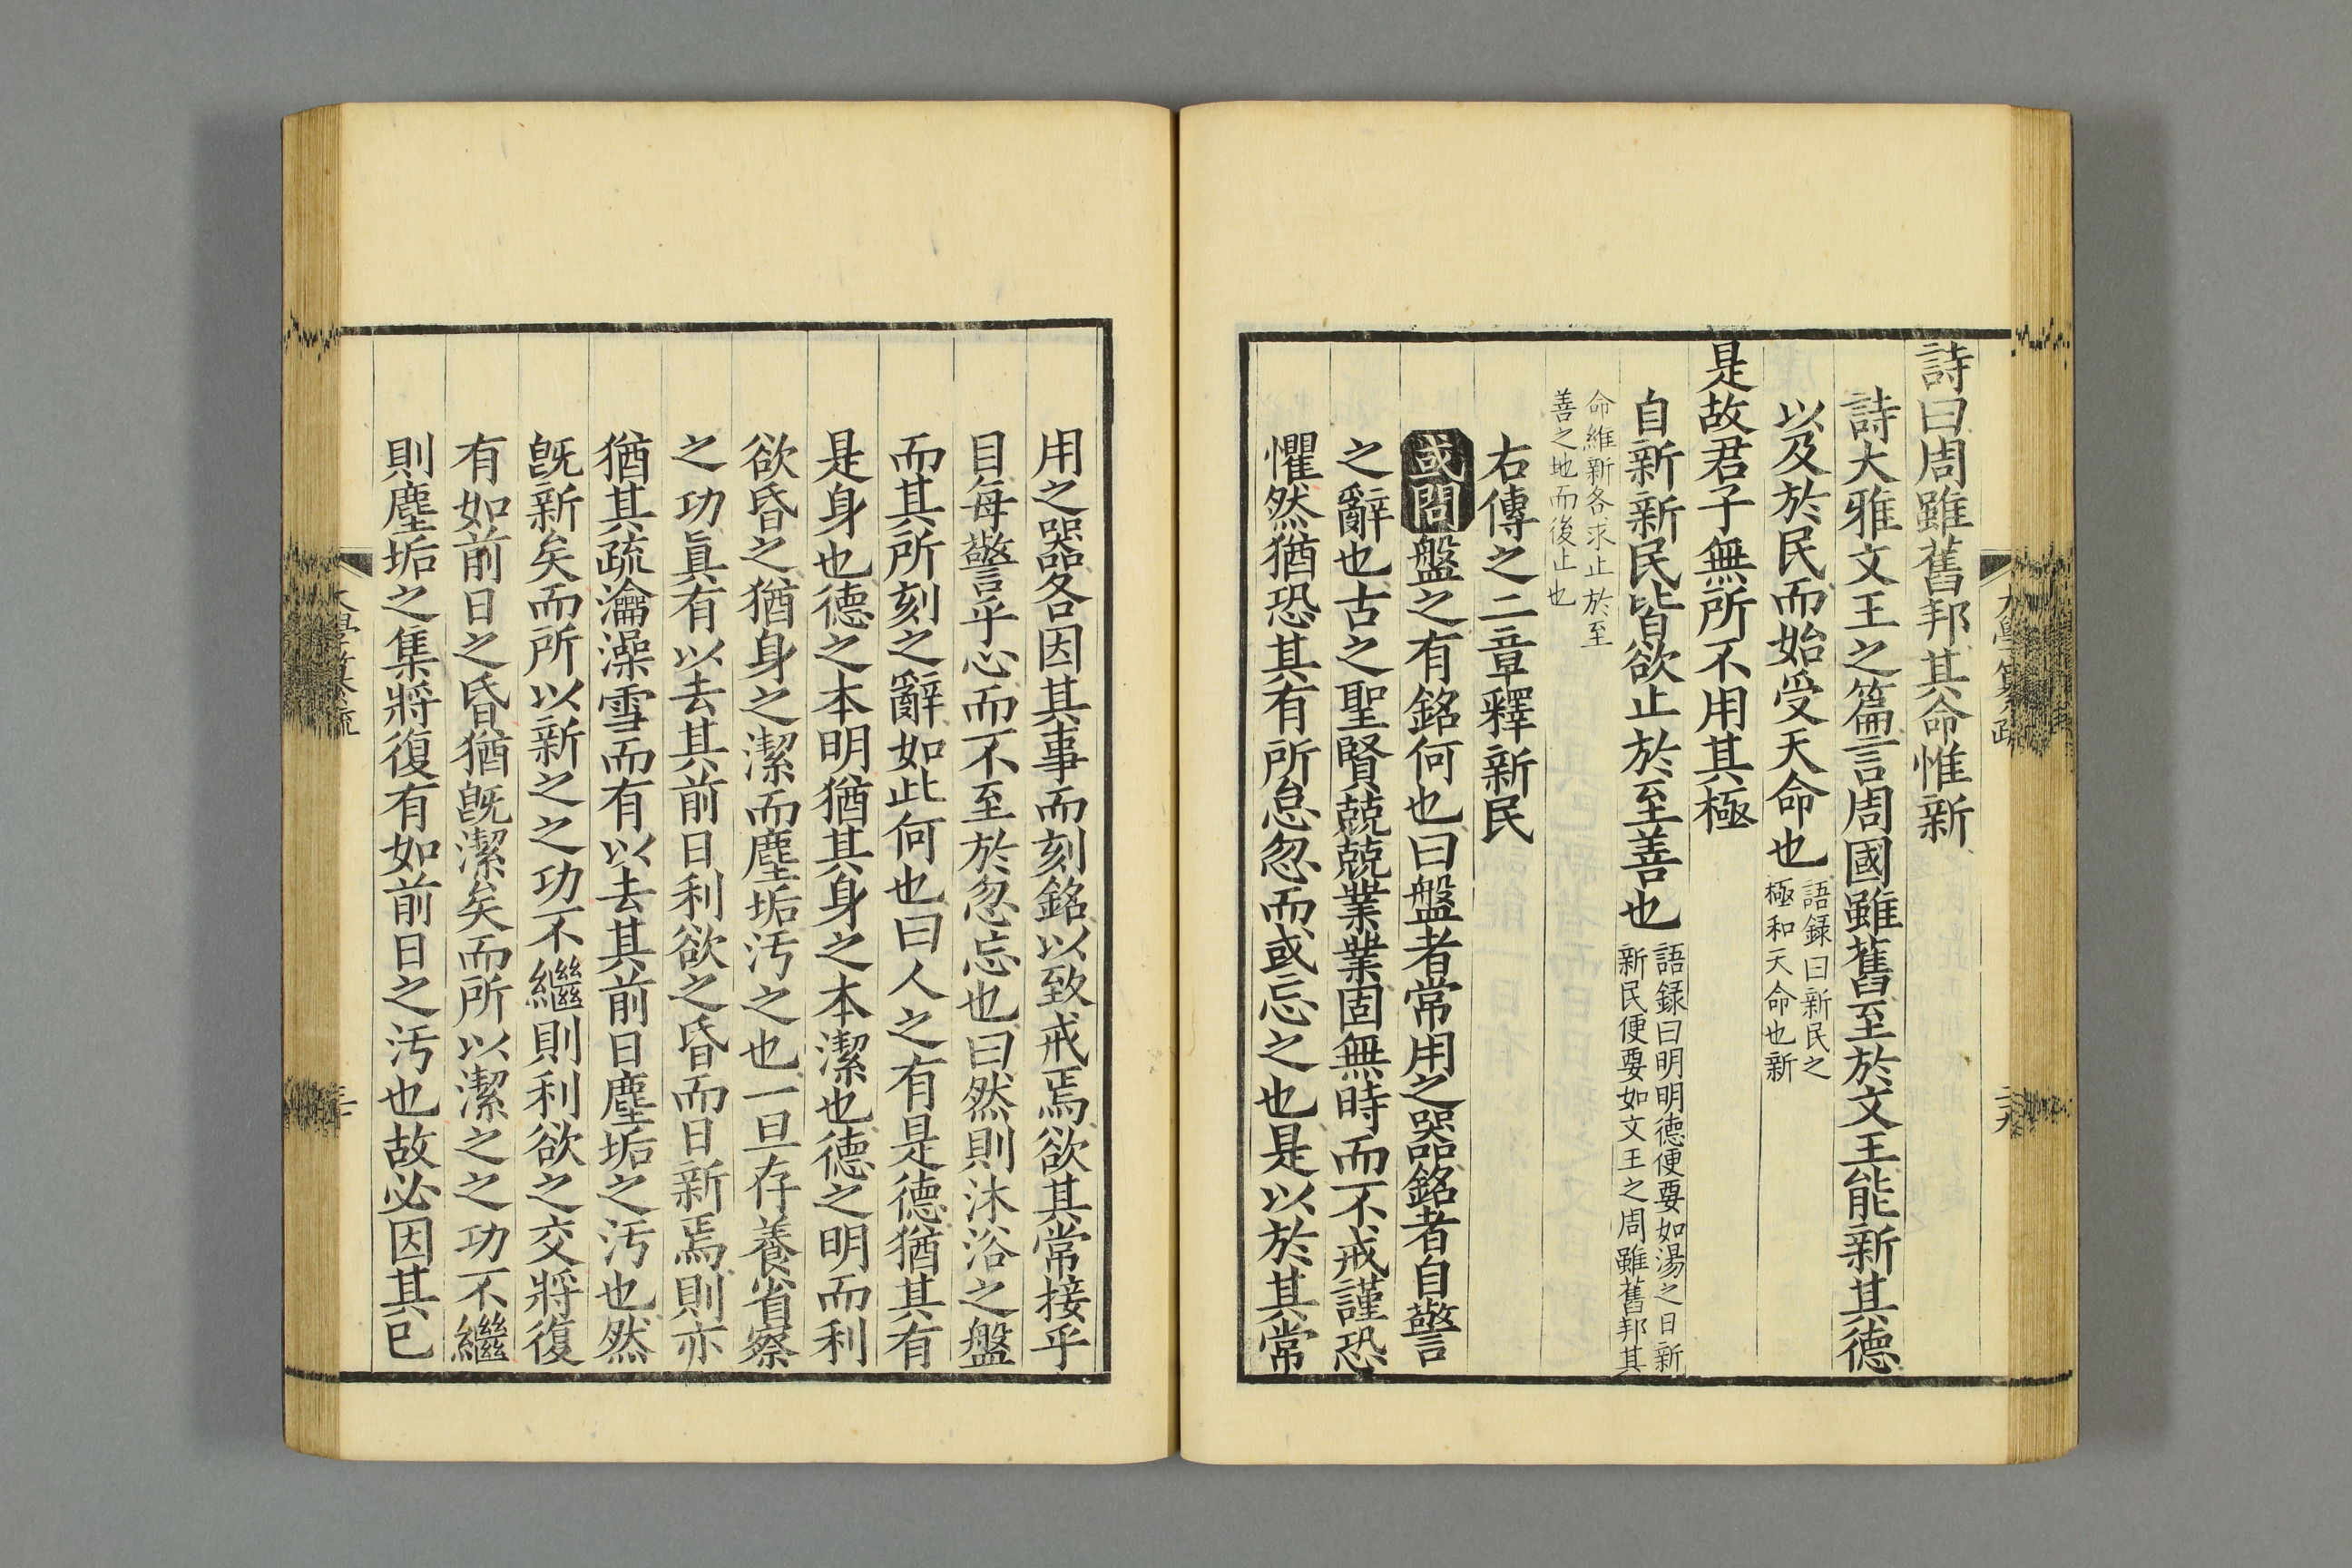 詩曰周雖舊邦其命惟新
詩大雅文王之篇言周國雖舊至於文王能新其德
以及於民而始受天命也
語録曰新民之
極和天命也新
是故君子無所不用其極
自新新民皆欲止於至善也
語録曰明明德便要如湯之日新
新民便要如文王之周雖舊邦其
命維新各求止於至
善之地而後止也
右傳之二章釋新民
或問盤之有銘何也曰盤者常用之器銘者自警
之辭也古之聖賢兢兢業業固無時而不戒謹恐
懼然猶恐其有所怠忽而或忘之也是以於其常
大學纂疏
二十九
用之器各因其事而刻銘以致戒焉欲其常接乎
目每警乎心而不至於忽忘也曰然則沐浴之盤
而其所刻之辭如此何也曰人之有是德猶其有
是身也德之本明猶其身之本潔也德之明而利
欲昏之猶身之潔而塵垢汚之也一旦存養省察
之功眞有以去其前日利欲之昏而日新焉則亦
猶其疏瀹澡雪而有以去其前日塵垢之汚也然
旣新矣而所以新之之功不繼則利欲之交將復
有如前日之昏猶旣潔矣而所以潔之之功不繼
則塵垢之集將復有如前日之汚也故必因其已
大學纂疏
三十